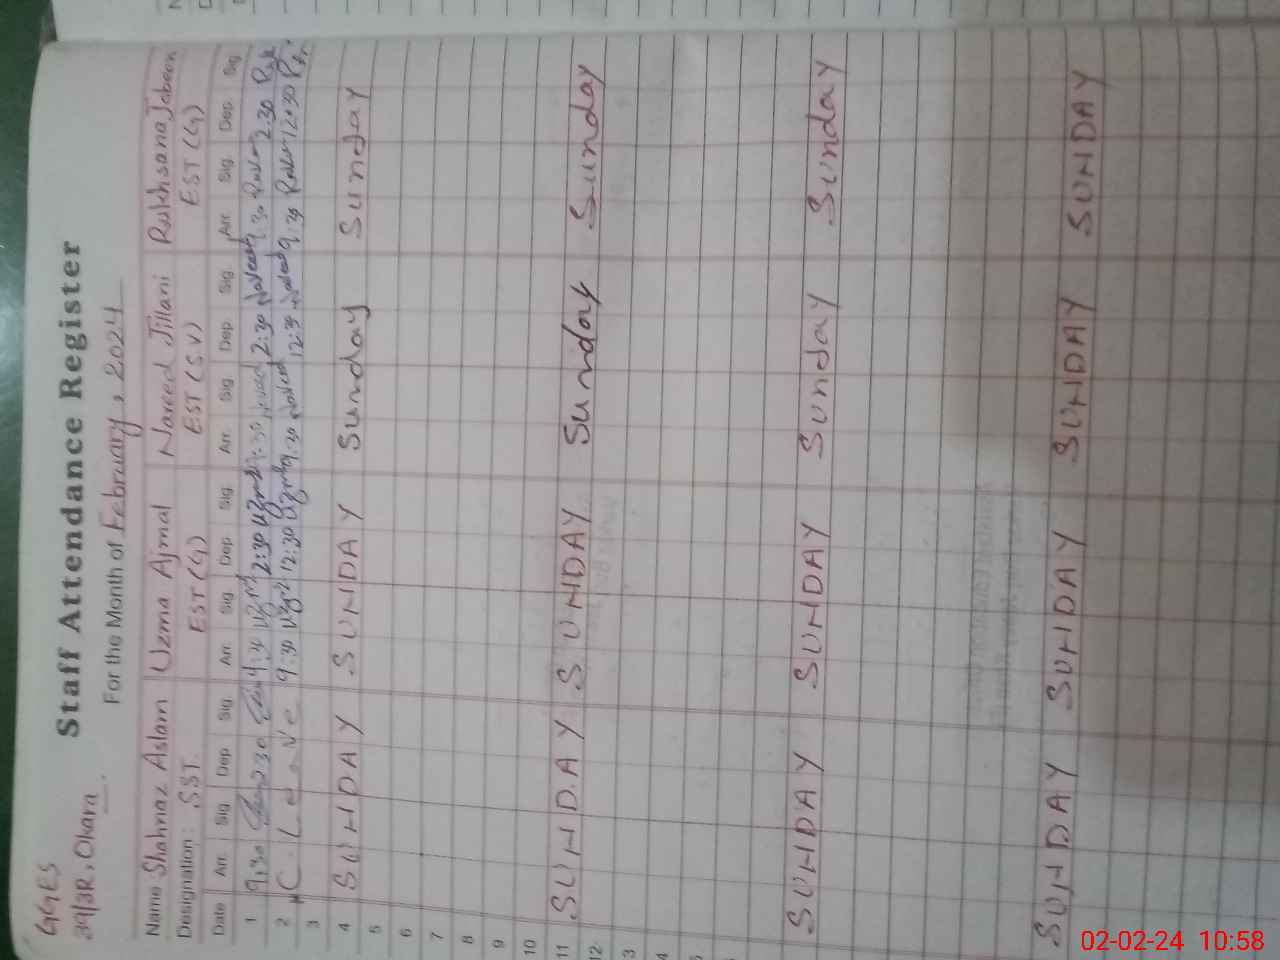 GGES
39/3R, Okara.
Staff Attendance Register
For the Month of February, 2024
Name Shahnaz Aslam Uzma Ajmal Naveed Jillani Rukhsana Jabeen
Designation: SST. EST (G) EST (SV) EST (G)
Date Arr. Sig Dep Sig. Arr. Sig Dep. Sig. Arr. Sig Dep. Sig. Arr. Sig. Dep. Sig
1 9:30 2:30 9:30 Uzma 2:30 Uzma 9:30 Naveed 2:30 Naveed 9:30 2:30
2 C. Leave 9:30 Uzma 12:30 Uzma 9:30 Naveed 12:30 Naveed 9:30 12:30
3
4 SUNDAY SUNDAY Sunday Sunday
5
6
7
8
9
10
11 SUNDAY SUNDAY Sunday Sunday
12
3
4
5
SUNDAY SUNDAY Sunday Sunday
SUNDAY SUNDAY SUNDAY SUNDAY
02-02-24 10:58